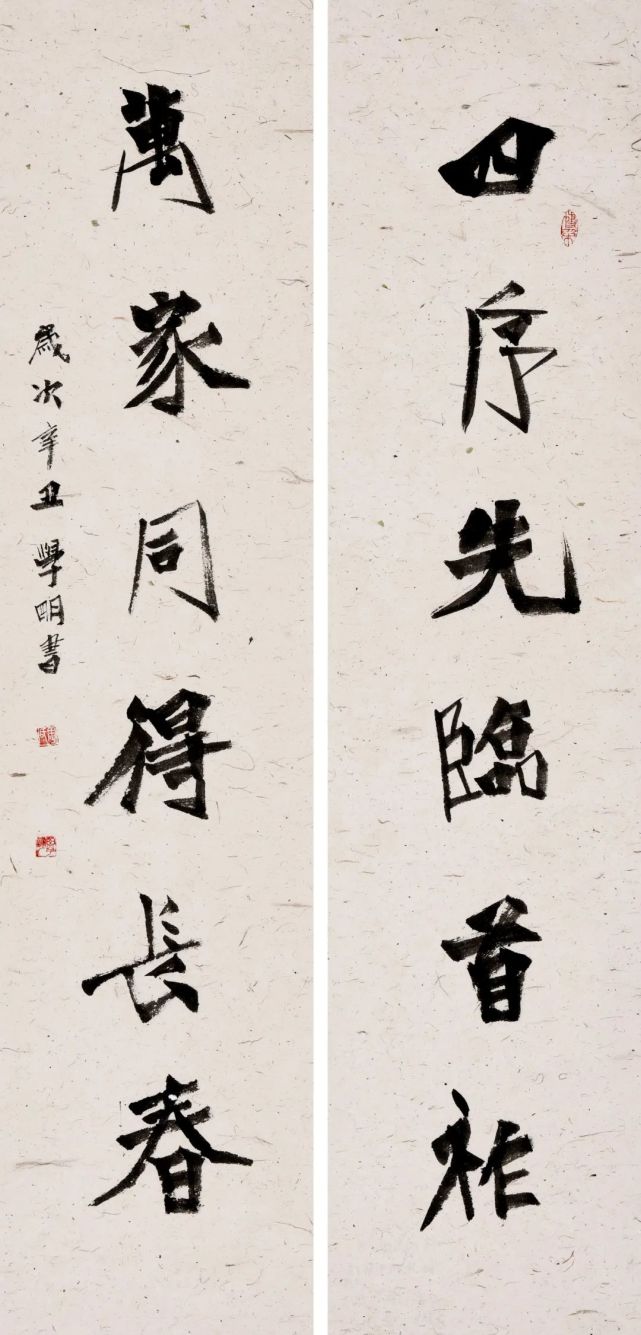 四序先臨首祚
萬家同得長春
歲次辛丑學明書